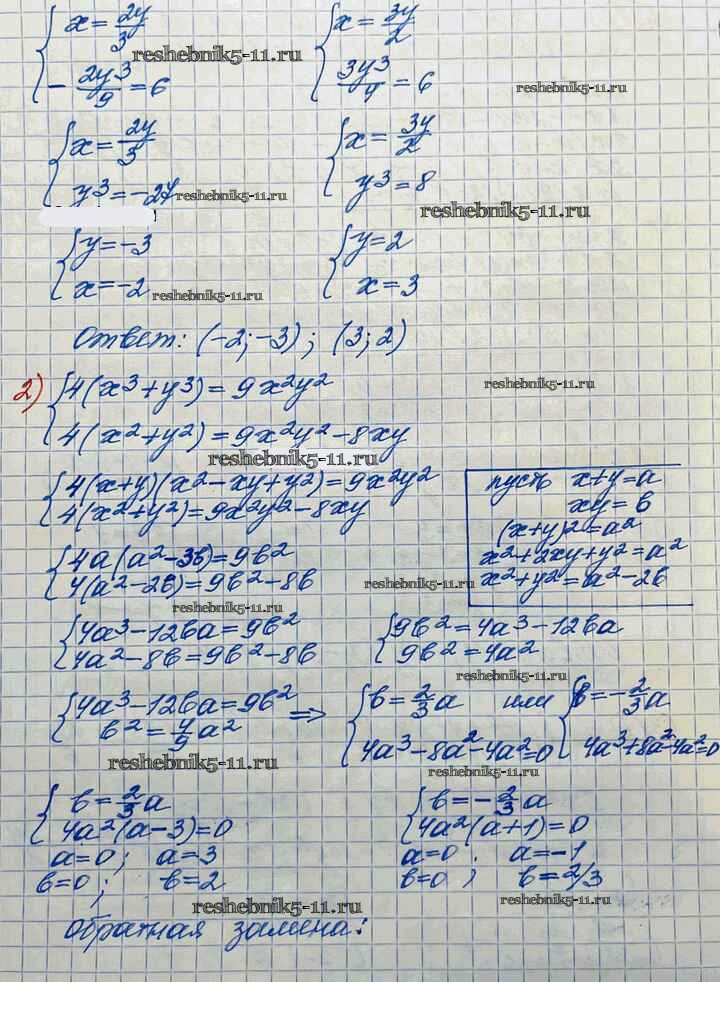 x = 2y/3 x = 3y/2
reshebnik5-11.ru
- 2y3/9 = 6 3y3/4 = 6 reshebnik5-11.ru
x = 2y/3 x = 3y/2
y3 = -27 reshebnik5-11.ru y3 = 8
reshebnik5-11.ru
y = -3 y = 2
x = -2 reshebnik5-11.ru x = 3
Ответ: (-2; -3); (3; 2)
2) 4(x³ + y³) = 9x²y² reshebnik5-11.ru
4(x² + y²) = 9x²y² - 8xy
reshebnik5-11.ru
4(x+y)(x² - xy + y²) = 9x²y²
4(x² + y²) = 9x²y² - 8xy
пусть x+y = a
xy = b
(x+y)² = a²
x² + 2xy + y² = a²
x² + y² = a² - 2b
4a(a² - 3b) = 9b²
4(a² - 2b) = 9b² - 8b reshebnik5-11.ru
reshebnik5-11.ru
4a³ - 12ba = 9b² 9b² = 4a³ - 12ba
4a² - 8b = 9b² - 8b 9b² = 4a²
reshebnik5-11.ru
4a³ - 12ba = 9b² ⇒ b = 2/3 a или b = -2/3 a
b² = 4/9 a² 4a³ - 8a² - 4a² = 0 4a³ + 8a² - 4a² = 0
reshebnik5-11.ru reshebnik5-11.ru
b = 2/3 a b = -2/3 a
4a²(a-3) = 0 4a²(a+1) = 0
a = 0; a = 3 a = 0; a = -1
b = 0; b = 2 b = 0; b = 2/3
reshebnik5-11.ru reshebnik5-11.ru
обратная замена: